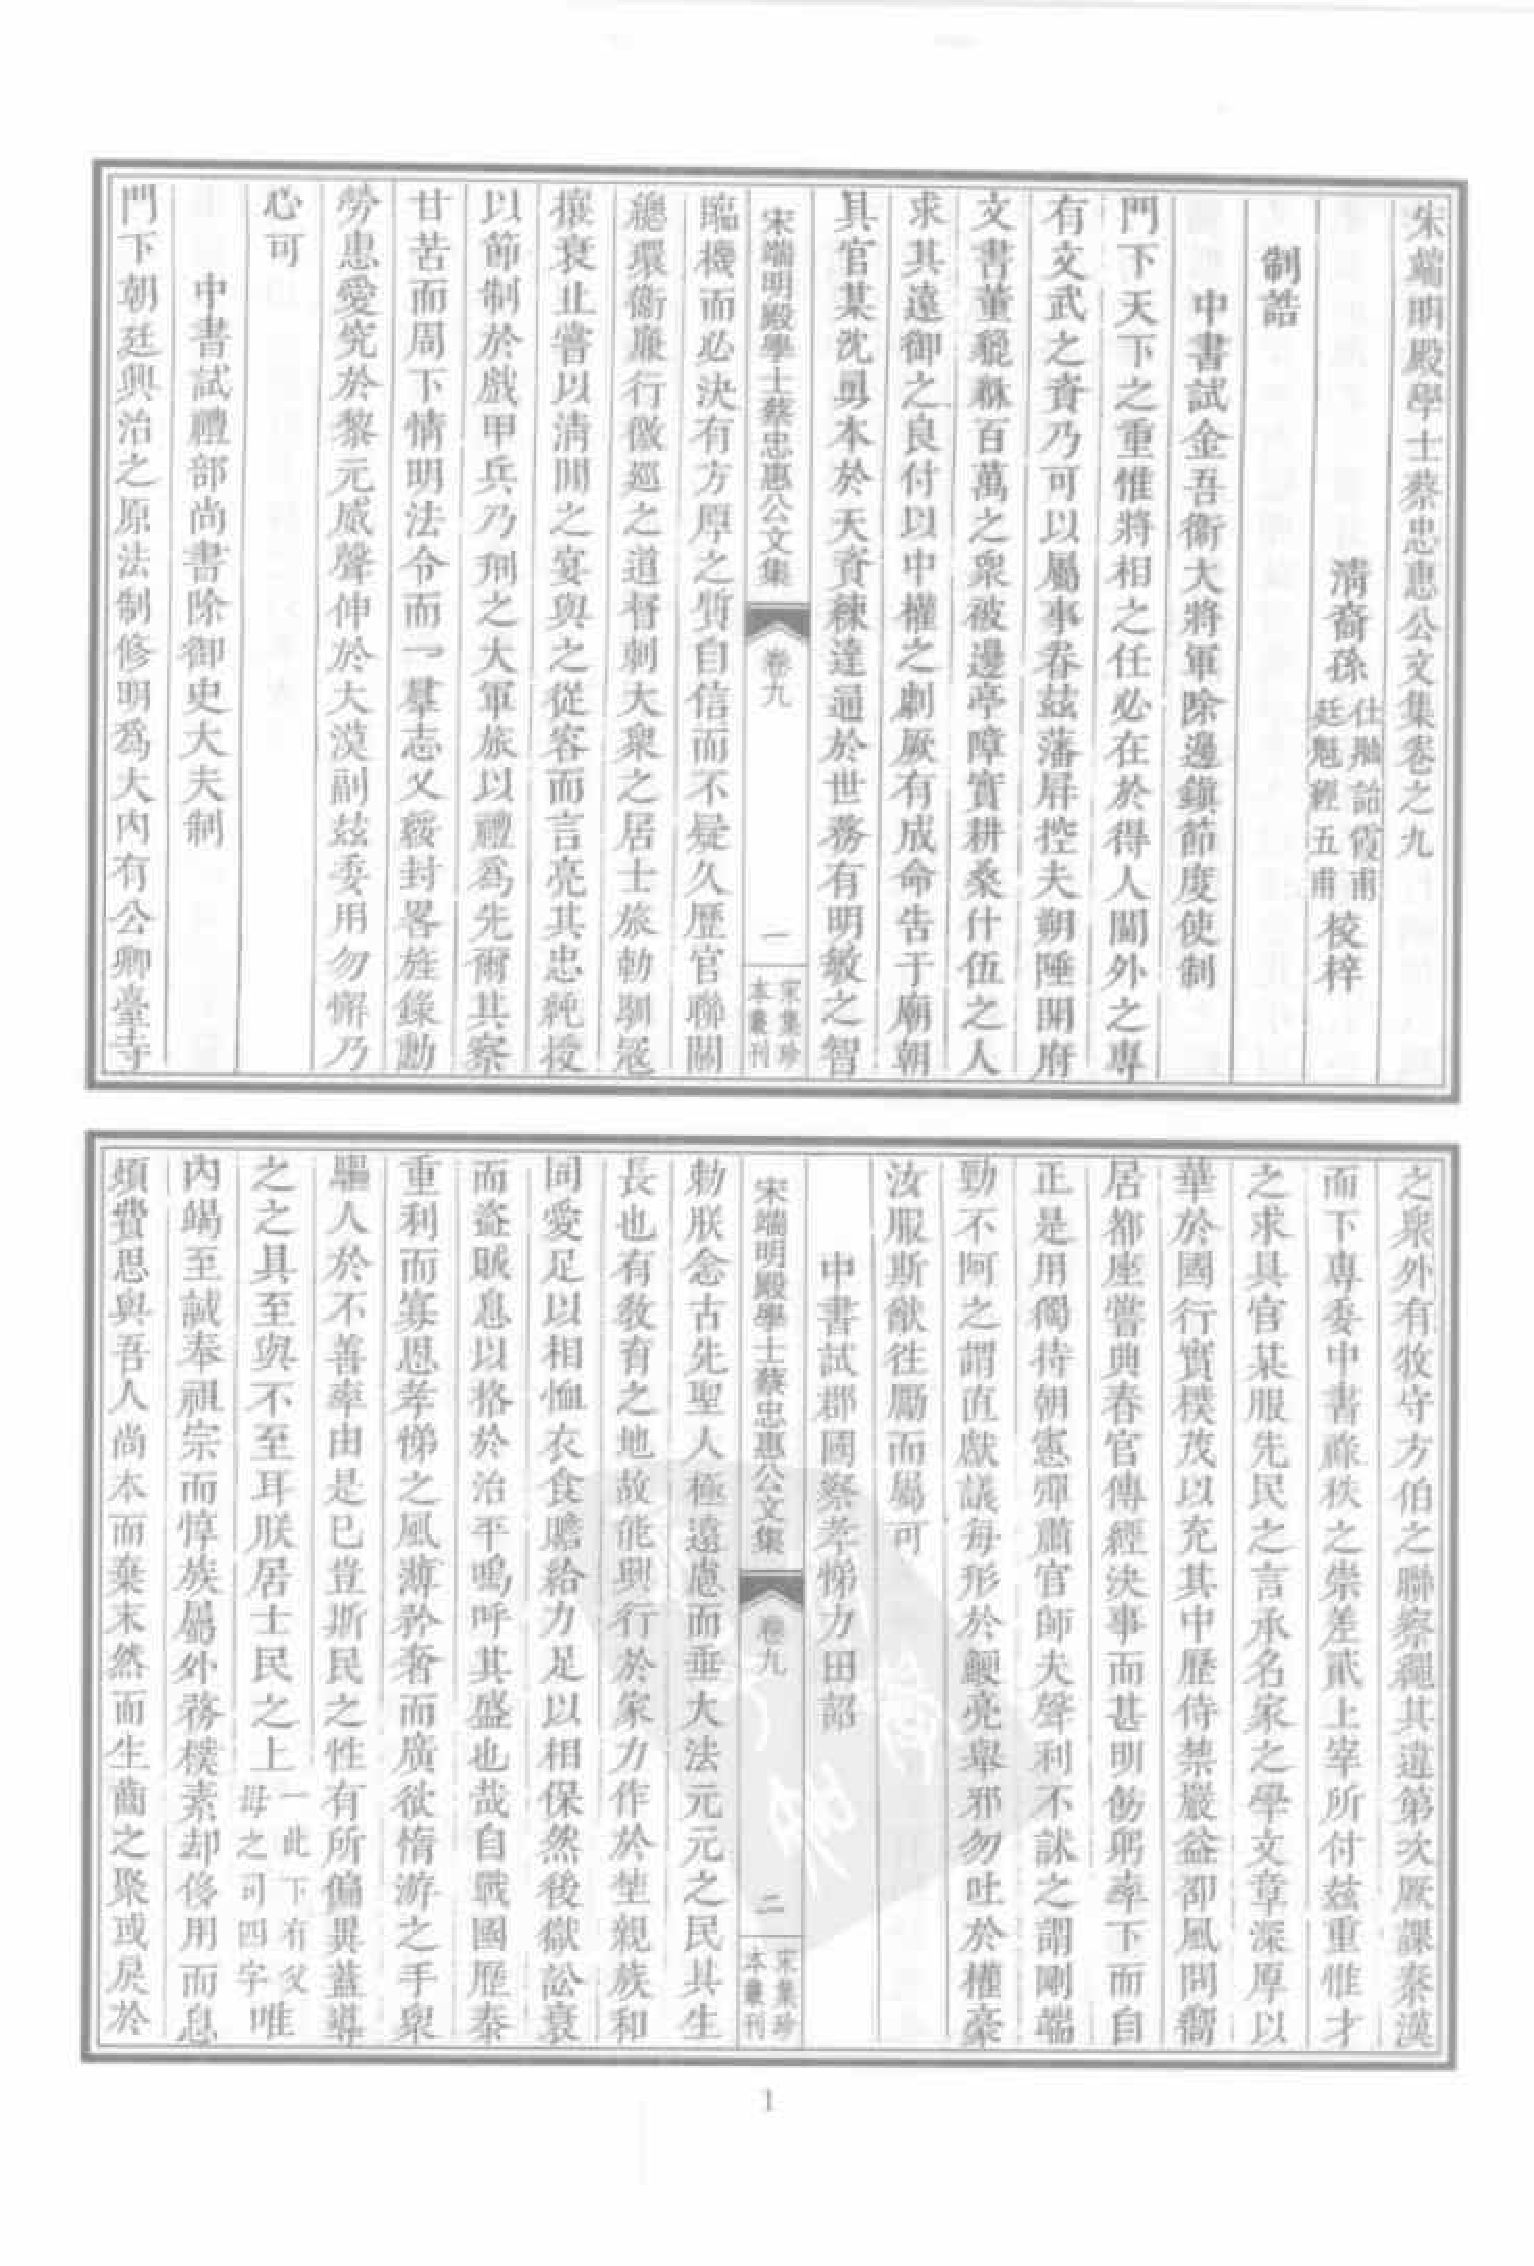 宋端明殿學士蔡忠惠公文集卷之九
清裔孫
仕舢詒霞甫
廷魁經五甫
校梓
制誥
中書試金吾衞大將軍除邊鎭節度使制
門下天下之重惟將相之任必在於得人閫外之專
有文武之資乃可以屬事眷兹藩屏控夫朔陲開府
文書董貔貅百萬之衆被邊亭障實耕桑什伍之人
求其遠御之良付以中權之劇厥有成命告于廟朝
具官某沈勇本於天資練達通於世務有明敏之智
宋端明殿學士蔡忠惠公文集
卷九
一
宋集珍
本叢刊
臨機而必決有方厚之質自信而不疑久歷官聯關
總環衞兼行徼巡之道督刺大衆之居士旅勅馴冦
攘衰止嘗以淸閒之宴與之從容而言亮其忠純授
以節制於戲甲兵乃刑之大軍旅以禮爲先爾其察
甘苦而周下情明法令而一羣志乂綏封畧旌錄勳
勞惠愛究於黎元威聲伸於大漠副兹委用勿懈乃
心可
中書試禮部尚書除御史大夫制
門下朝廷興治之原法制修明爲大内有公卿臺寺
之衆外有牧守方伯之聯察繩其違第次厥課秦漢
而下專委中書蘇秩之崇差貳上宰所付兹重惟才
之求具官某服先民之言承名家之學文章深厚以
華於國行實樸茂以充其中歷侍禁嚴益卲風問嚮
居都座嘗典春官傳經決事而甚明飭躬率下而自
正是用獨持朝憲彈肅官師夫聲利不訹之謂剛端
勁不阿之謂直獻議每形於鯁亮舉邪勿吐於權豪
汝服斯猷徃勵而屬可
中書試郡國察孝悌力田詔
宋端明殿學士蔡忠惠公文集
卷九
二
宋集珍
本叢刊
勅朕念古先聖人極遠慮而垂大法元元之民其生
長也有敎育之地故能興行於家力作於埜親族和
同愛足以相恤衣食贍給力足以相保然後獄訟衰
而盜賊息以格於治平嗚呼其盛也哉自戰國歷秦
重利而寡恩孝悌之風薄矜奢而廣欲惰游之手衆
驅人於不善率由是已豈斯民之性有所偏異蓋導
之之具至與不至耳朕居士民之上
一此下有父
母之司四字
唯
内竭至誠奉祖宗而惇族屬外務樸素却侈用而息
煩費思與吾人尚本而棄末然而生齒之聚或戾於
1